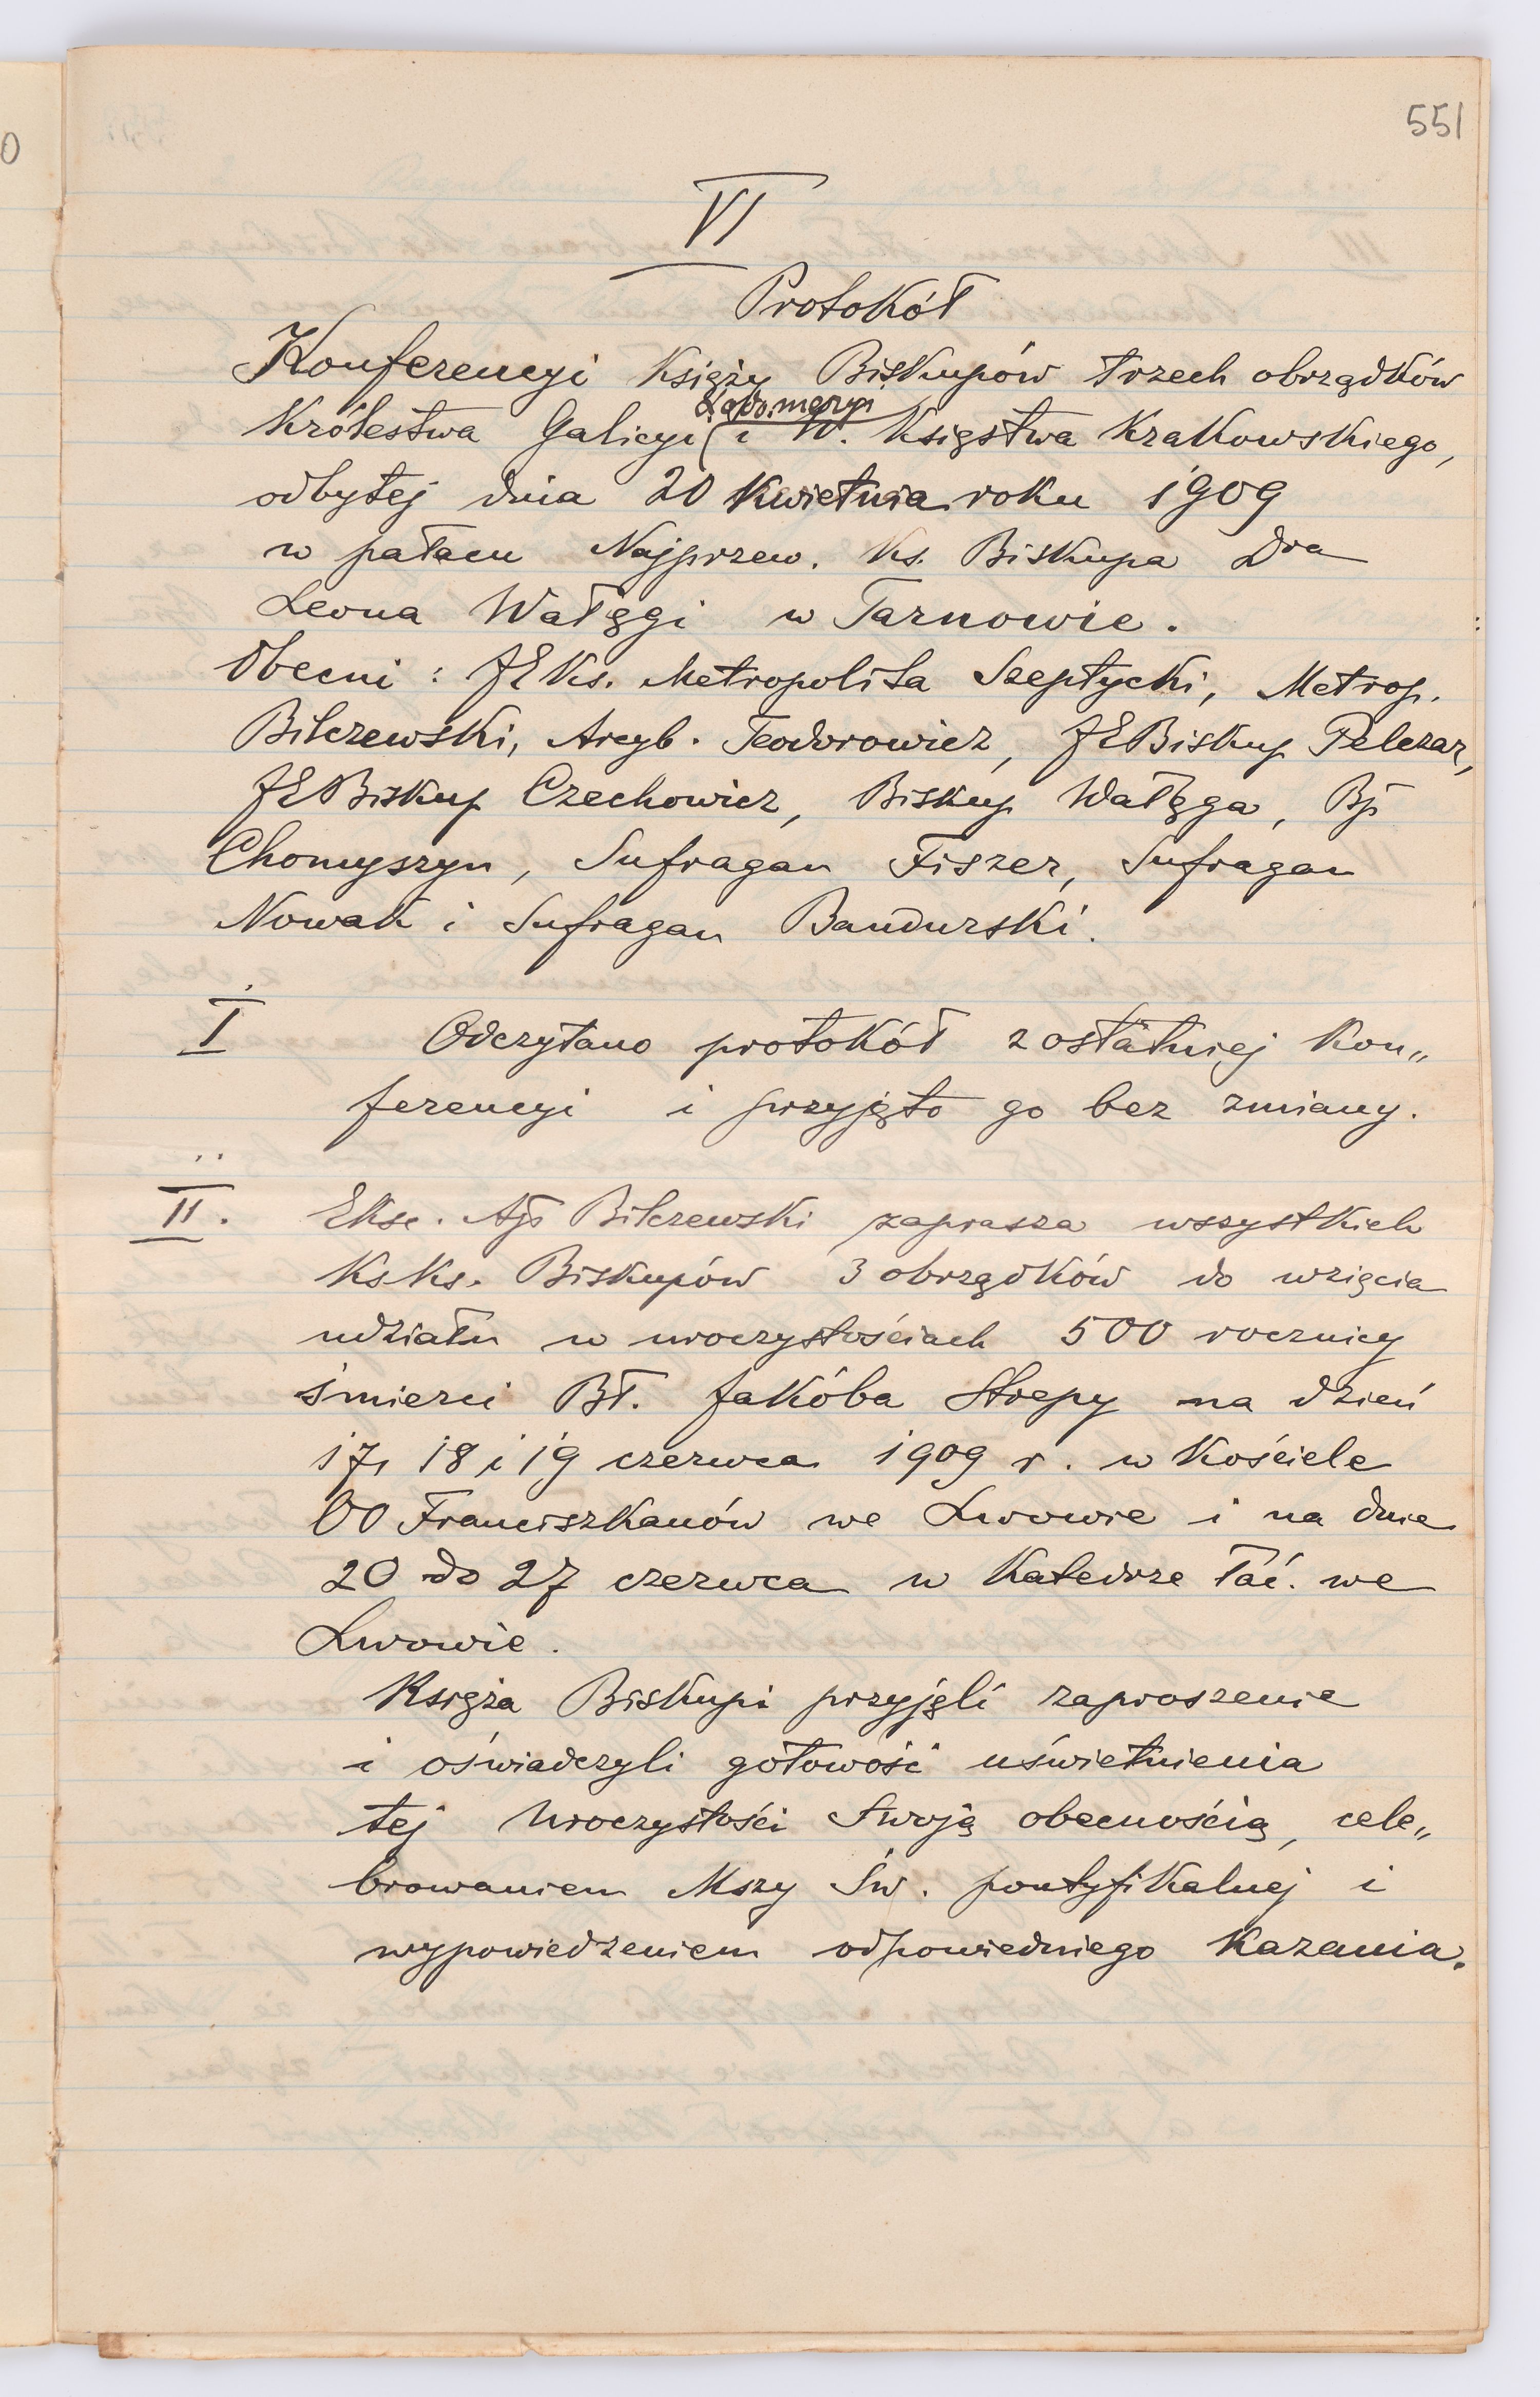 551
VI
Protokół
Konferencyi Księży Biskupów trzech obrządków
Lodomeryi
Królestwa Galicyi ( i W. Księstwa Krakowskiego,
odbytej dnia 20 Kwietnia roku 1909
w pałacu Najprzew. Ks. Biskupa Dra
Leona Wałęgi w Tarnowie.
Obecni : JE Ks. Metropolita Szeptycki, Metrop.
Bilczewski, Arcyb. Teodorowicz, JEBiskup Pelczar,
JEBiskup Czechowicz, Biskup Wałęga, Bp
Chomyszyn, Sufragan Fiszer, Sufragan
Nowak i Sufragan Bandurski.
I Odczytano protokół z ostatniej Kon„
ferencyi i przyjęto go bez zmiany.
II. Eksc. Abp Bilczewski zaprasza wszystkich
KsKs. Biskupów 3 obrządków do wzięcia
udziału w uroczystościach 500 rocznicy
śmierci Bł. Jakóba Strepy na dzień
17, 18 i 19 czerwca 1909 r. w Kościele
OO Franciszkanów we Lwowie i na dnie
20 do 27 czerwca w Katedrze łać. we
Lwowie.
Księża Biskupi przyjęli zaproszenie
i oświadczyli gotowość uświetnienia
tej Uroczystości Swoją obecnością, cele„
browaniem Mszy Św. pontyfikalnej i
wypowiedzeniem odpowiedniego Kazania.